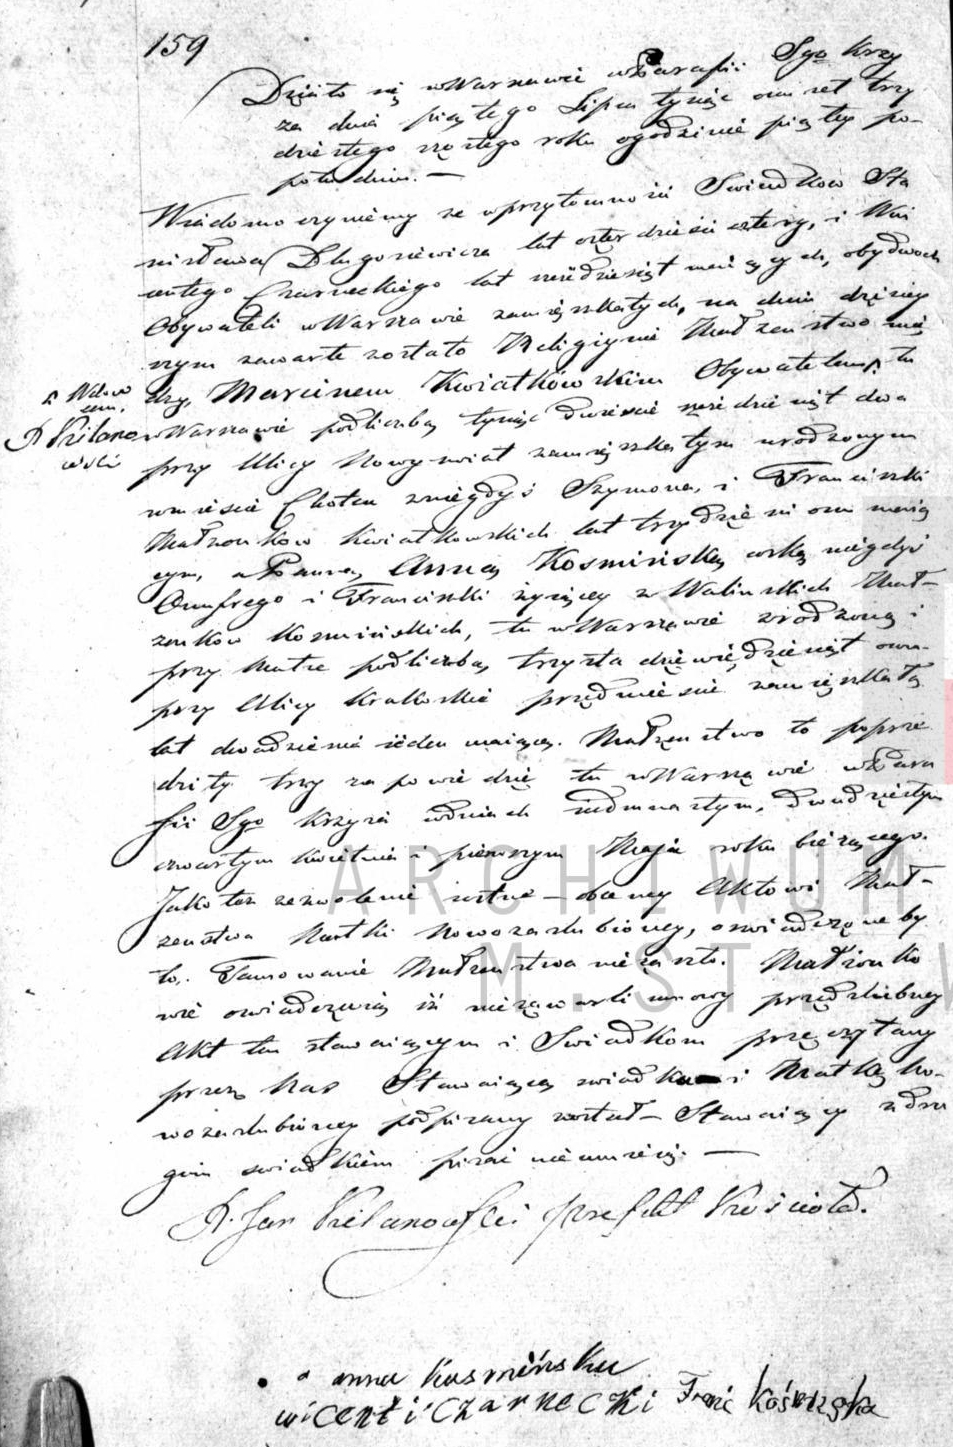 159
Działo się w Warszawie w Parafii Sgo Krzy
ża dnia piątego Lipca tysiąc ośmset trzy
dziestego szóstego roku o godzinie piątey po-
południu. —
Wiadomo czyniemy że w przytomności Świadków Sta
nisława Długosiewicza lat czterdzieści cztery, i Win
centego Czarneckiego lat sześćdziesiąt maiących, obydwoch
Obywateli w Warszawie zamięszkałych, na dniu dzisiey
szym zawarte zostało Religiyne Małżeństwo mię
dzy Marcinem Kwiatkowskim Obywatelem, tu
Wdow
cem.
w Warszawie pod liczbą tysiąc dwieście sześćdziesiąt dwa
przy Ulicy Nowy-świat zamięszkałym urodzonym
w mieście z niegdyś Szymona, i Franciszki
Małżonków Kwiatkowskich lat trzydzieści ośm maią
cym, a Panną Anną Kosmińską córką niegdyś
Onufrego i Franciszki żyiącey z Walińskich Mał-
żonków Kosmińskich, tu w Warszawie zrodzoną i
przy Matce pod liczbą trzysta dziewięćdziesiąt ośm
przy Ulicy Krakoskie przedmieście zamięszkałą
lat dwadzieścia ieden maiącą. Małżeństwo to poprze
dziły trzy zapowiedzie tu w Warszawie w Para
fii Sgo Krzyża w dniach siedmnastym, dwudziestym
czwartym Kwietnia i pierwszym Maja roku bieżącego.
Jako też zezwolenie ustne — obecney Aktowi Mał-
żeństwa Matki Nowozaślubioney, oświadczone by
ło. Tamowanie Małżeństwa nie zaszło. Małżonko
wie oświadczaią iż nie zawarli umowy przedślubney
Akt ten stawaiącym i Świadkom przeczytany
przez Nas Stawaiącą świadka i Matkę No-
wozaślubioney podpisany został — Stawaiący z dru
gim świadkiem pisać nie umieią. —
Kościoła.
anna Kosmińska
wicenti czarnecki
ARCHIWUM
M.ST.W